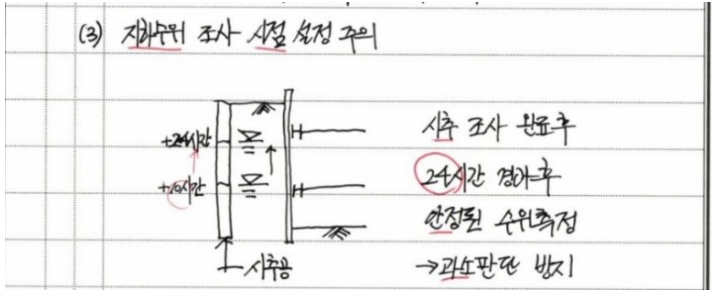 (3) 지하수위 조사 시점 설정 주의
+24시간
+10시간
시추공
시추 조사 완료후
24시간 경과후
안정된 수위측정
→과소판단 방지